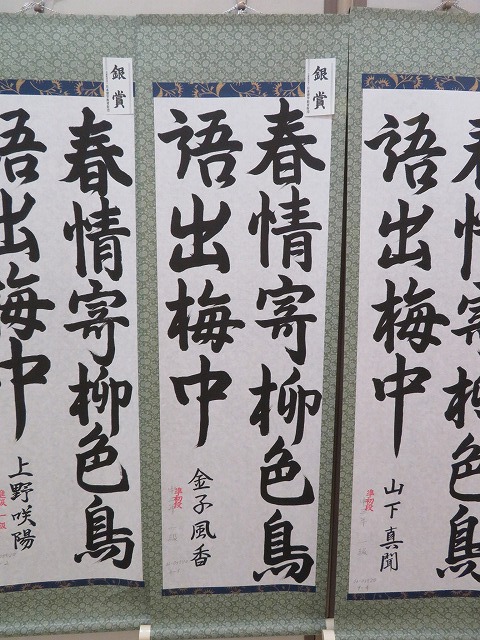 銀賞
春情寄柳色鳥
語出梅中
準初段
山下真聞
銀賞
春情寄柳色鳥
語出梅中
準初段
金子風香
春情寄柳色鳥
語出梅中
上野咲陽